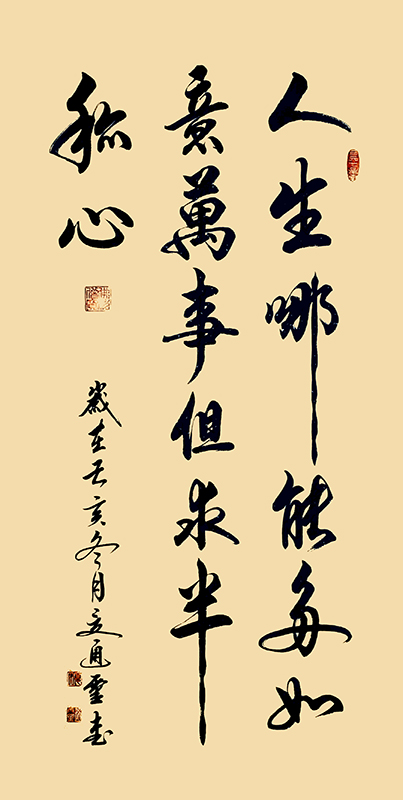 人生哪能多如
意萬事但求半
称心
歲在壬亥冬月通書